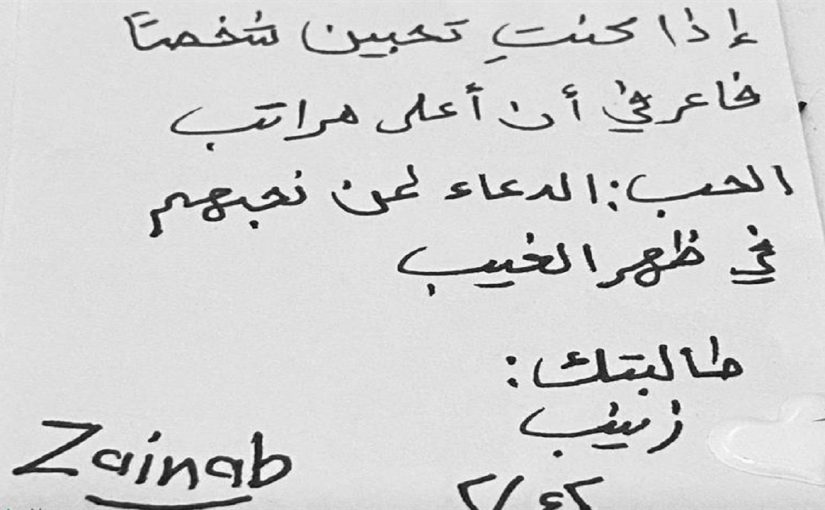 إذا كنتِ تحبين شخصًا
فاعرفي أن أعلى مراتب
الحب: الدعاء لمن نحبهم
في ظهر الغيب
طالبتك:
زينب
Zainab